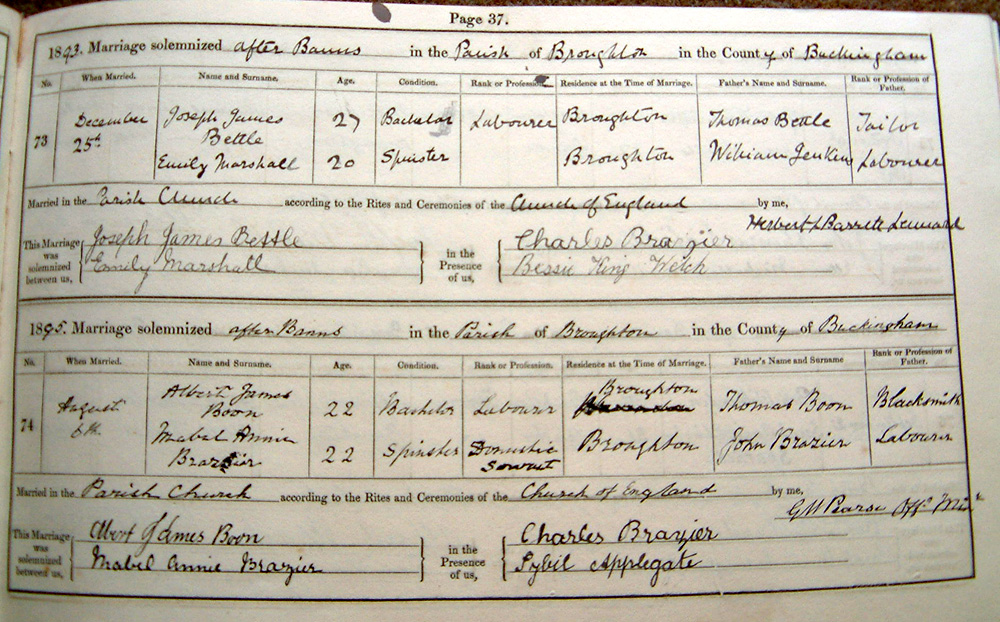 Page 37.
1893. Marriage solemnized after Banns in the Parish of Broughton in the County of Buckingham
No. When Married. Name and Surname. Age. Condition. Rank or Profession. Residence at the Time of Marriage. Father's Name and Surname. Rank or Profession of Father.
73 December 25th Joseph James Bettle 27 Bachelor Labourer Broughton Thomas Bettle Tailor
Emily Marshall 20 Spinster Broughton William Jenkins Labourer
Married in the Parish Church according to the Rites and Ceremonies of the Church of England by me,
Herbert L Barrett Lennard
This Marriage was solemnized between us, Joseph James Bettle in the Presence of us, Charles Brazier
Emily Marshall Bessie King Welch
1895. Marriage solemnized after Banns in the Parish of Broughton in the County of Buckingham
No. When Married. Name and Surname. Age. Condition. Rank or Profession. Residence at the Time of Marriage. Father's Name and Surname Rank or Profession of Father.
74 August 6th. Albert James Boon 22 Bachelor Labourer Broughton Thomas Boon Blacksmith
Mabel Annie Brazier 22 Spinster Domestic Servant Broughton John Brazier Labourer
Married in the Parish Church according to the Rites and Ceremonies of the Church of England by me,
GW Pearse Offg Minr
This Marriage was solemnized between us, Albert James Boon in the Presence of us, Charles Brazier
Mabel Annie Brazier Sybil Applegate